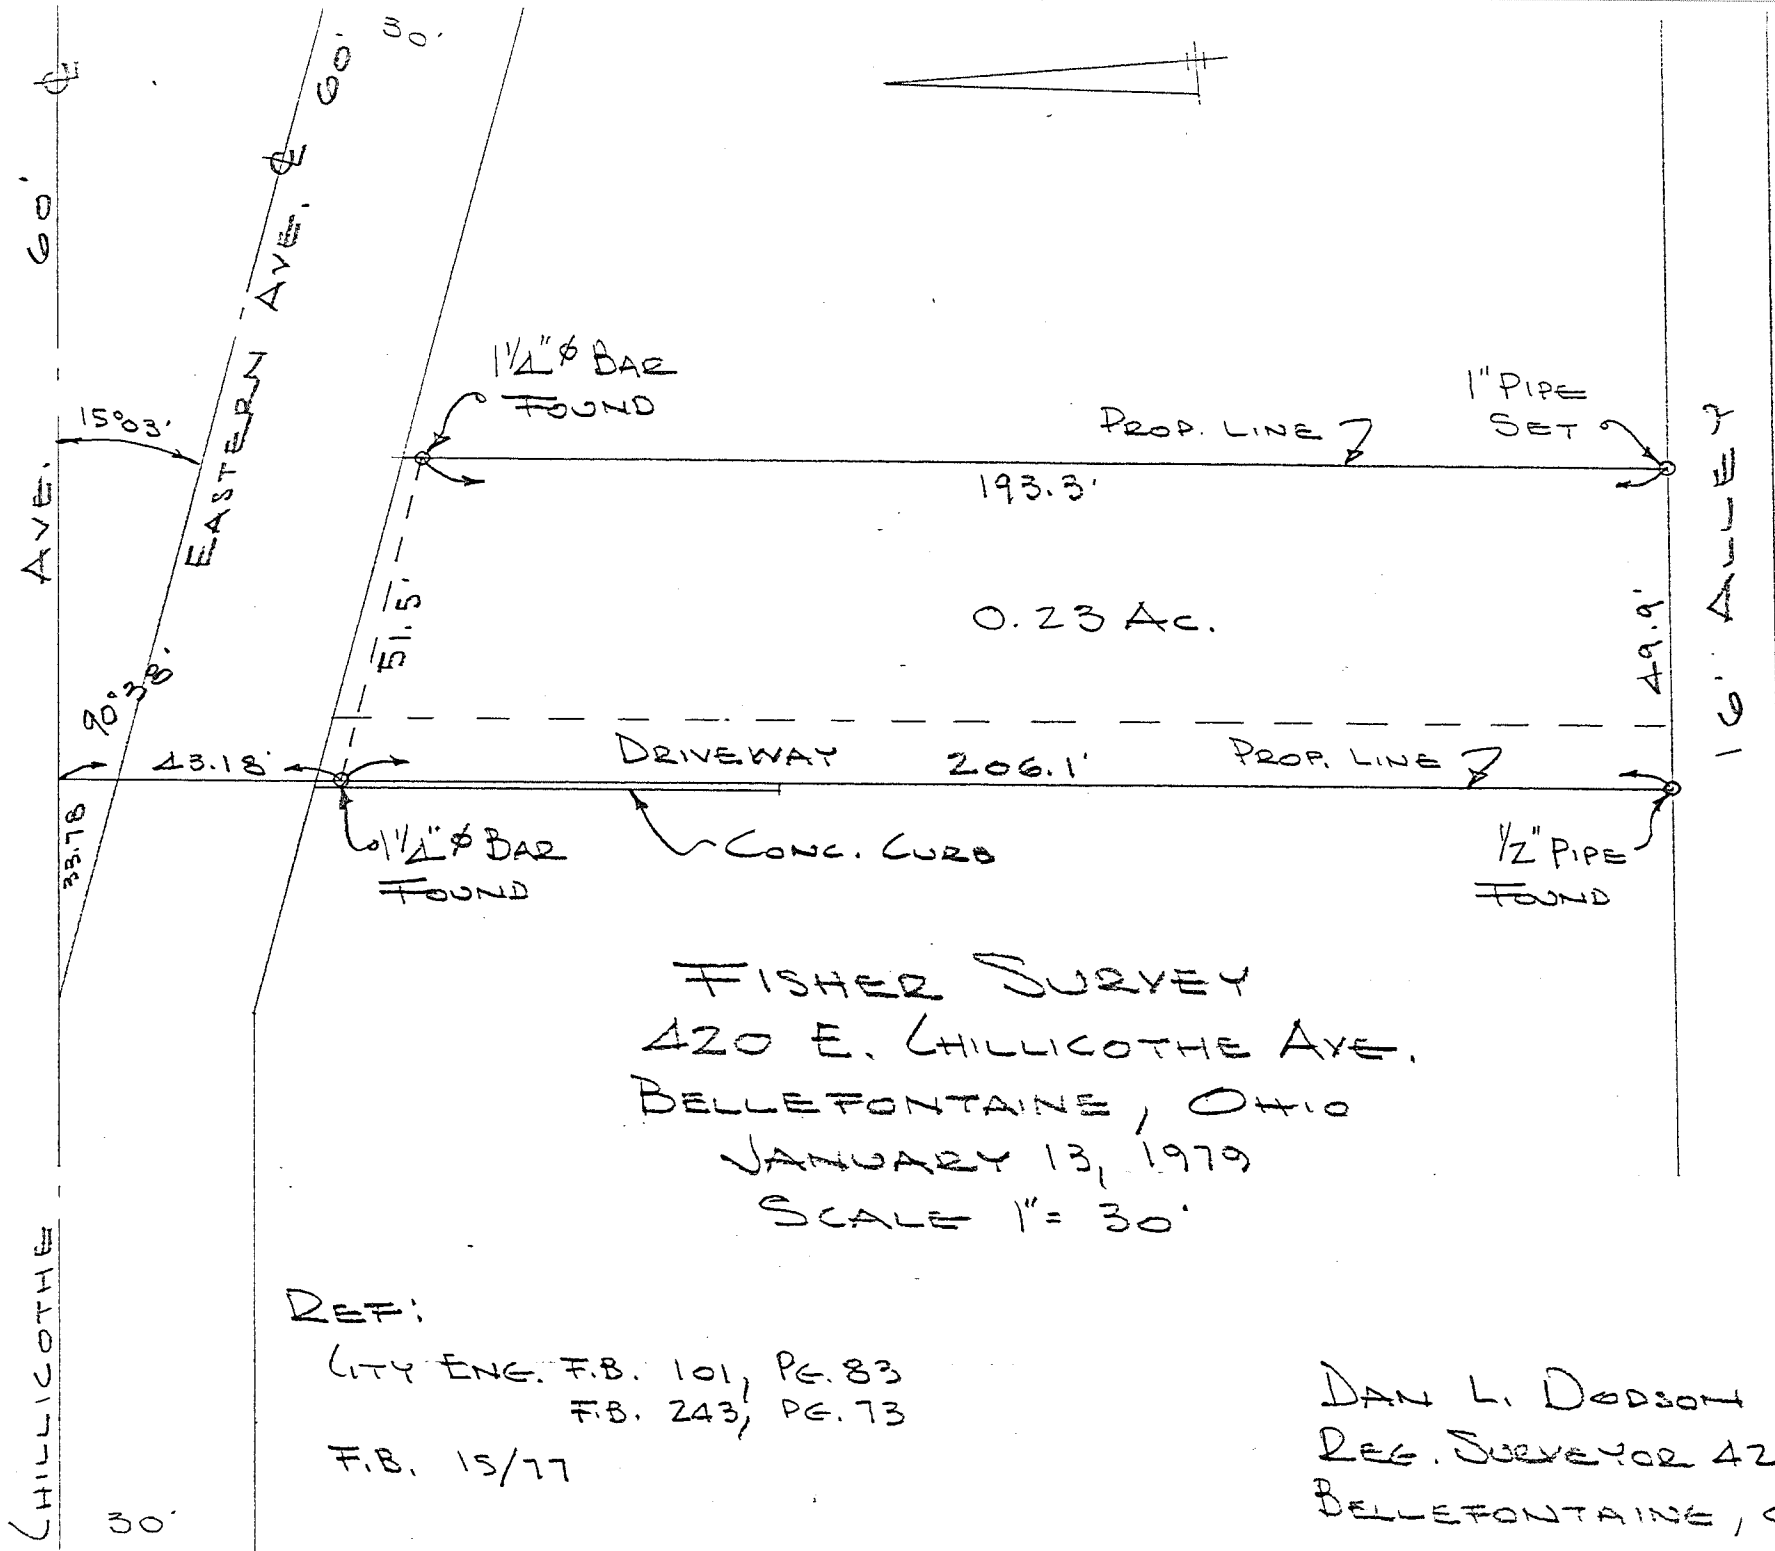 30'
60'
℄
℄
60'
AVE.
EASTERN AVE.
15°03'
1 1/4" ⌀ BAR
FOUND
1" PIPE
SET
PROP. LINE
193.3'
16' ALLEY
51.5'
0.23 AC.
49.9'
90°38'
43.18'
DRIVEWAY
206.1'
PROP. LINE
33.78
1 1/4" ⌀ BAR
FOUND
CONC. CURB
1/2" PIPE
FOUND
FISHER SURVEY
420 E. CHILLICOTHE AVE.
BELLEFONTAINE, OHIO
JANUARY 13, 1979
SCALE 1" = 30'
CHILLICOTHE
30'
REF:
CITY ENG. F.B. 101, PG. 83
F.B. 243, PG. 73
F.B. 15/77
DAN L. DODSON
REG. SURVEYOR 42
BELLEFONTAINE,